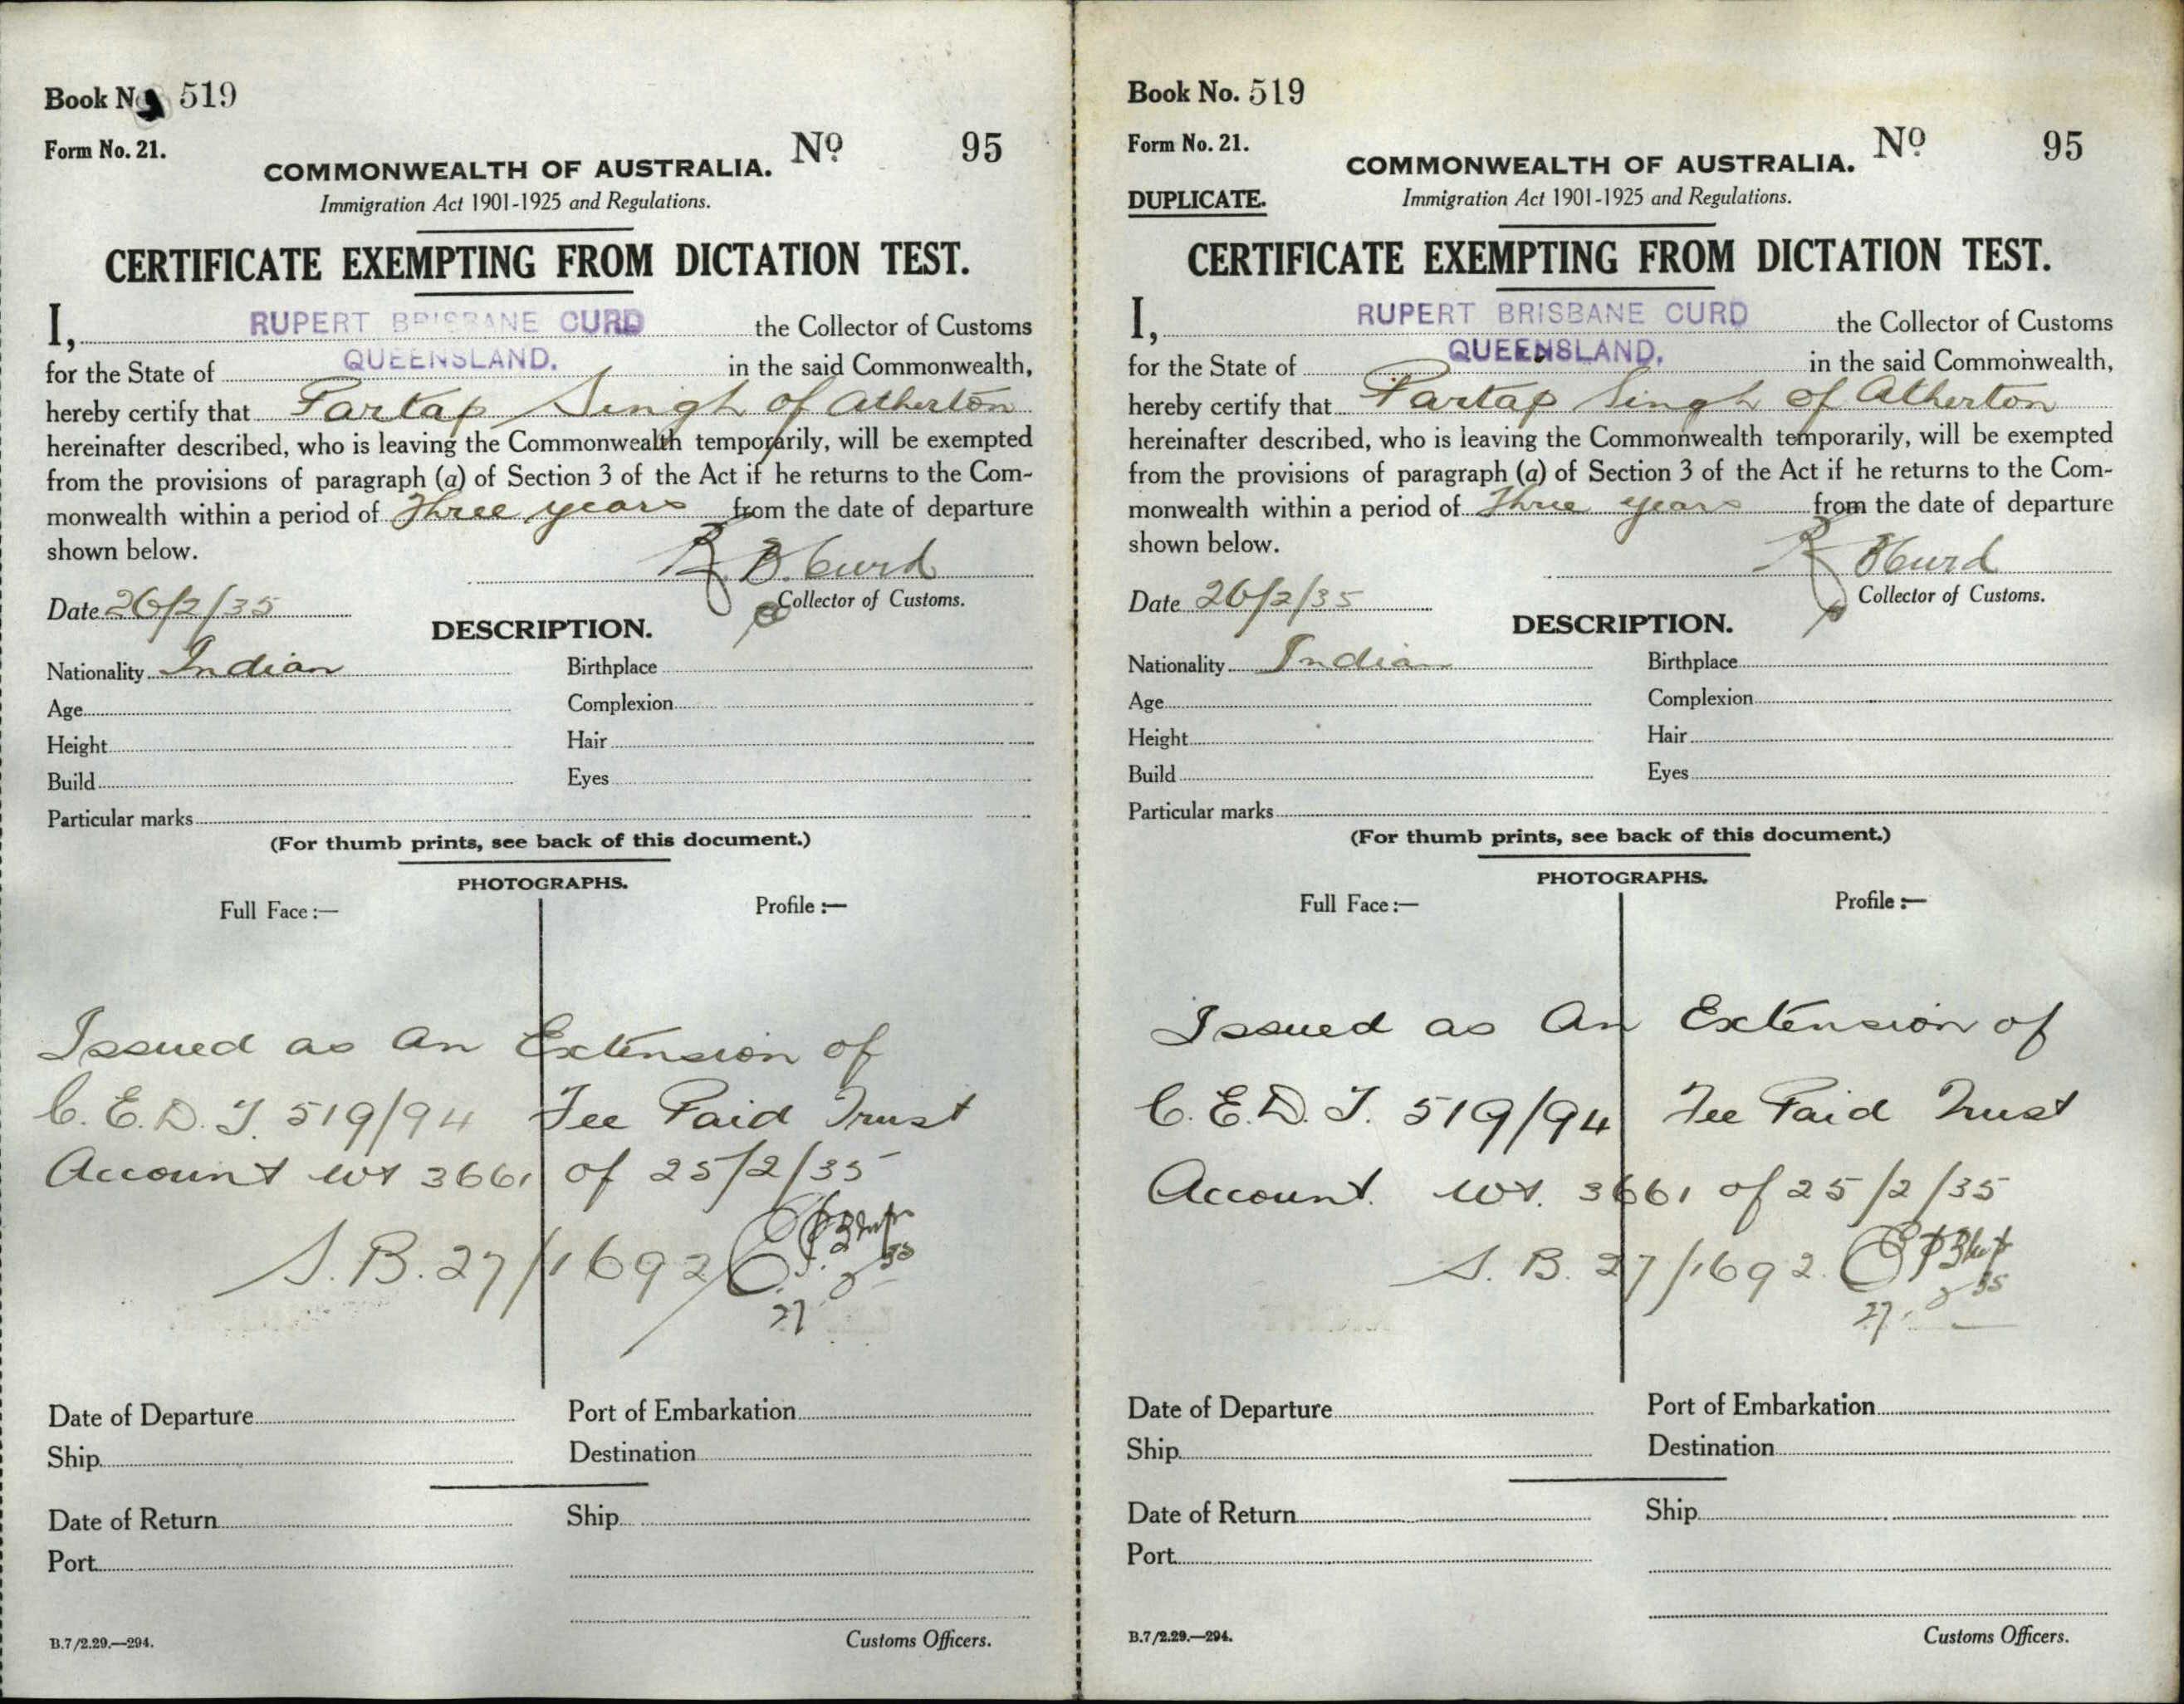 Book No. 519
Form No. 21.
No 95
COMMONWEALTH OF AUSTRALIA.
Immigration Act 1901-1925 and Regulations.
CERTIFICATE EXEMPTING FROM DICTATION TEST.
I, RUPERT BRISBANE CURD the Collector of Customs
for the State of QUEENSLAND. in the said Commonwealth,
hereby certify that Partap Singh of Atherton
hereinafter described, who is leaving the Commonwealth temporarily, will be exempted
from the provisions of paragraph (a) of Section 3 of the Act if he returns to the Com-
monwealth within a period of three years from the date of departure
shown below.
R. B. Curd
Date 26/2/35 Collector of Customs.
DESCRIPTION.
Nationality Indian Birthplace
Age Complexion
Height Hair
Build Eyes
Particular marks
(For thumb prints, see back of this document.)
PHOTOGRAPHS.
Full Face :— Profile :—
Issued as An Extension of
C.E.D.T. 519/94 Fee Paid Trust
Account 3661 of 25/2/35
S.B. 27/1692
27. 2 35
Date of Departure Port of Embarkation
Ship Destination
Date of Return Ship
Port
B.7/2.29.—294. Customs Officers.
Book No. 519
Form No. 21.
No 95
COMMONWEALTH OF AUSTRALIA.
DUPLICATE. Immigration Act 1901-1925 and Regulations.
CERTIFICATE EXEMPTING FROM DICTATION TEST.
I, RUPERT BRISBANE CURD the Collector of Customs
for the State of QUEENSLAND. in the said Commonwealth,
hereby certify that Partap Singh of Atherton
hereinafter described, who is leaving the Commonwealth temporarily, will be exempted
from the provisions of paragraph (a) of Section 3 of the Act if he returns to the Com-
monwealth within a period of three years from the date of departure
shown below.
R B Curd
Date 26/2/35 Collector of Customs.
DESCRIPTION.
Nationality Indian Birthplace
Age Complexion
Height Hair
Build Eyes
Particular marks
(For thumb prints, see back of this document.)
PHOTOGRAPHS.
Full Face :— Profile :—
Issued as An Extension of
C.E.D.T. 519/94 Fee Paid Trust
Account. 3661 of 25/2/35
S.B. 27/1692.
27. 2 35
Date of Departure Port of Embarkation
Ship Destination
Date of Return Ship
Port
B.7/2.29.—294. Customs Officers.